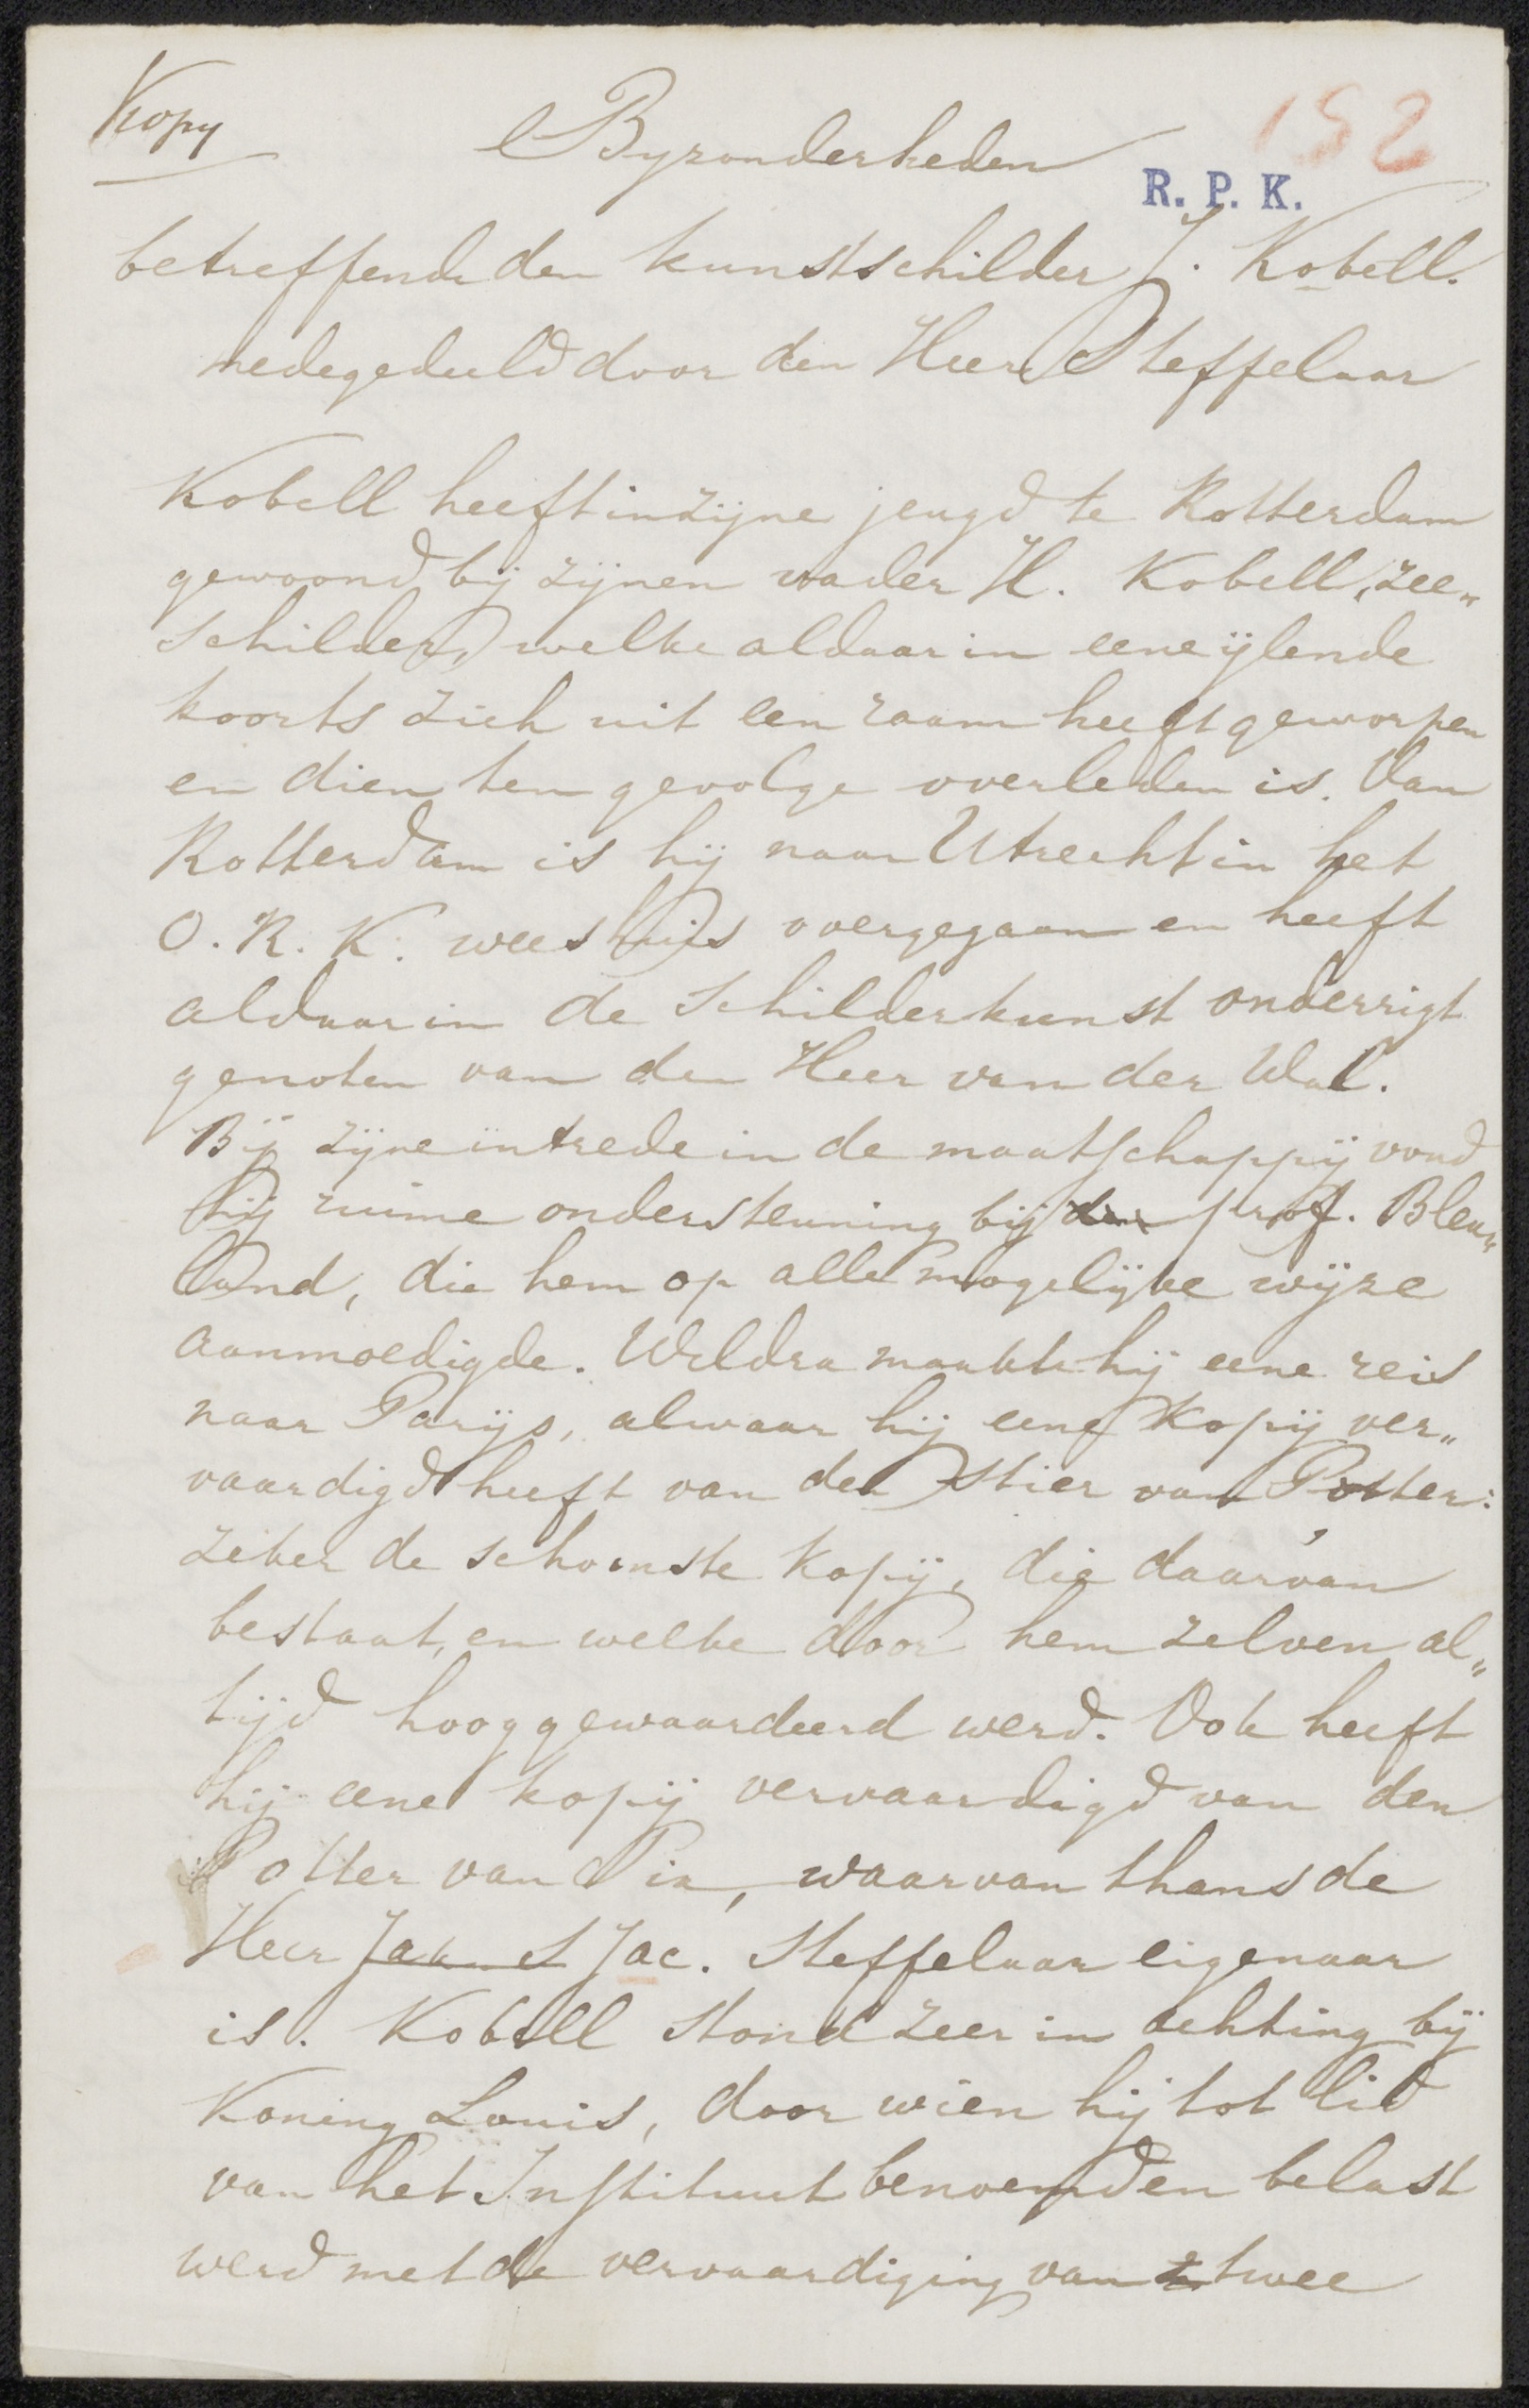 Kopy
Byzonderheden
152
R. P. K.
betreffende den kunstschilder J. Kobell.
medegedeeld door den Heer Steffelaar
Kobell heeft in zijne jeugd te Rotterdam
gewoond bij zijnen vader H. Kobell, zee„
schilder, welke aldaar in eene ijlende
koorts zich uit een raam heeft geworpen
en dien ten gevolge overleden is. Van
Rotterdam is hij naar Utrecht in het
O. R. K. weeshuis overgegaan en heeft
aldaar in de schilderkunst onderrigt
genoten van den Heer van der Wal.
Bij zijne intrede in de maatschappij vond
hij ruime ondersteuning bij den prof. Bleu„
land, die hem op alle mogelijke wijze
aanmoedigde. Weldra maakte hij eene reis
naar Parijs, alwaar hij eene kopij ver„
vaardigd heeft van den Stier van Potter:
zeker de schoonste kopij, die daarvan
bestaat, en welke door hem zelven al„
tijd hoog gewaardeerd werd. Ook heeft
hij eene kopij vervaardigd van den
Potter van Pia, waarvan thans de
Heer Jac. Steffelaar eigenaar
is. Kobell stond zeer in achting bij
Koning Louis, door wien hij tot lid
van het Instituut benoemd en belast
werd met de vervaardiging van 2 twee